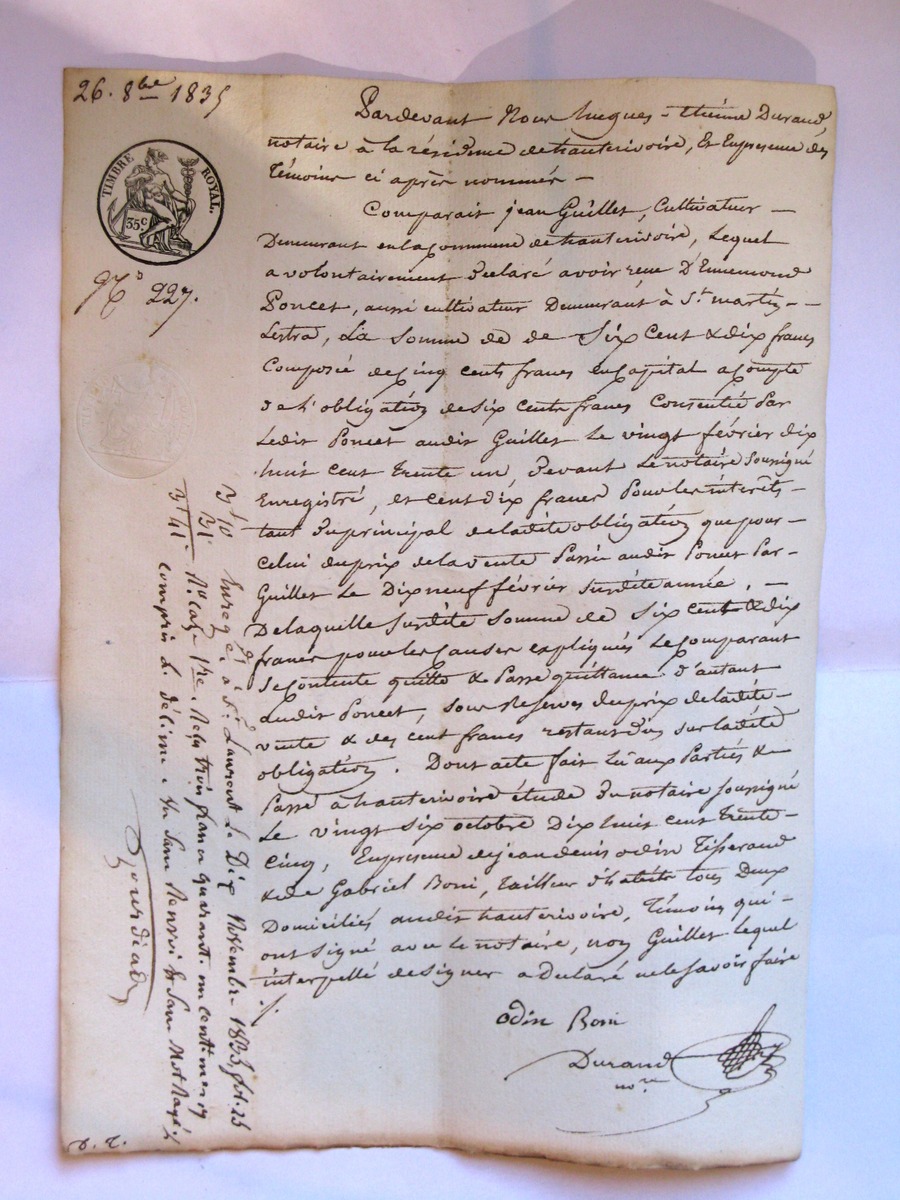 26. 8bre 1835
TIMBRE ROYAL.
35c
No 227.
Pardevant Nous hugues-Etiénne Durand,
notaire à la résidence de hauterivoire, Et Enpresence des
Témoins ci après nommés —
Comparait jean Guillet, Cultivateur —
Demeurant en la Commune de hauterivoire, Lequel
a volontairement Déclaré avoir reçu D'Ennemond
Poncet, aussi cultivateur Demeurant à St. martin —
Lestra, La Somme de de Six Cent & dix francs
Composée de Cinq cents francs en Capital a Compte
de l'obligation de six cents francs Consentie Par
Ledit Poncet audit Guillet Le vingt février dix
huit cent trente un, Devant Le notaire Soussigné
Enregistré, et cent dix francs Pour les intérêts —
tant Du principal de ladite obligation que pour —
Celui du prix de la vente Passée audit Poncet Par —
Guillet Le Dix neuf février Surdite année. —
De laquelle Surdite Somme de Six Cent & dix
francs pour les Causes expliquées Le Comparant
Se Contente quitte & Passe quittance D'autant
audit Poncet, sous reserves du prix de ladite —
vente & des cent francs restant Dus sur ladite
obligation. Dont acte fait Lu aux Parties &
Passé à hauterivoire étude Du notaire Soussigné
Le vingt six octobre Dix huit cent trente —
Cinq, En presence de jean denis odin Tisserand
& de Gabriel Boni, tailleur d'habits tous Deux
Domiciliés audit hauterivoire, Témoins qui —
ont Signé avec le notaire, non Guillet lequel
interpellé de Signer a Déclaré ne le Savoir faire
odin Boni
Durand
nore
Enregé. à St. Laurent Le Dix Novembre 1835, fol. 25
Ro. caze 1re. Reçu trois francs quarante un centimes
compris le décime. Sans Renvoi & Sans Mot Rayé
3f 10
31
3f 41c